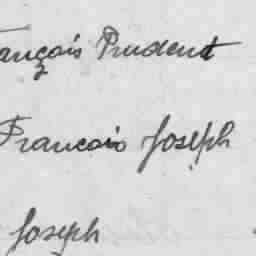 ançois Prudent
Francois Joseph
Joseph